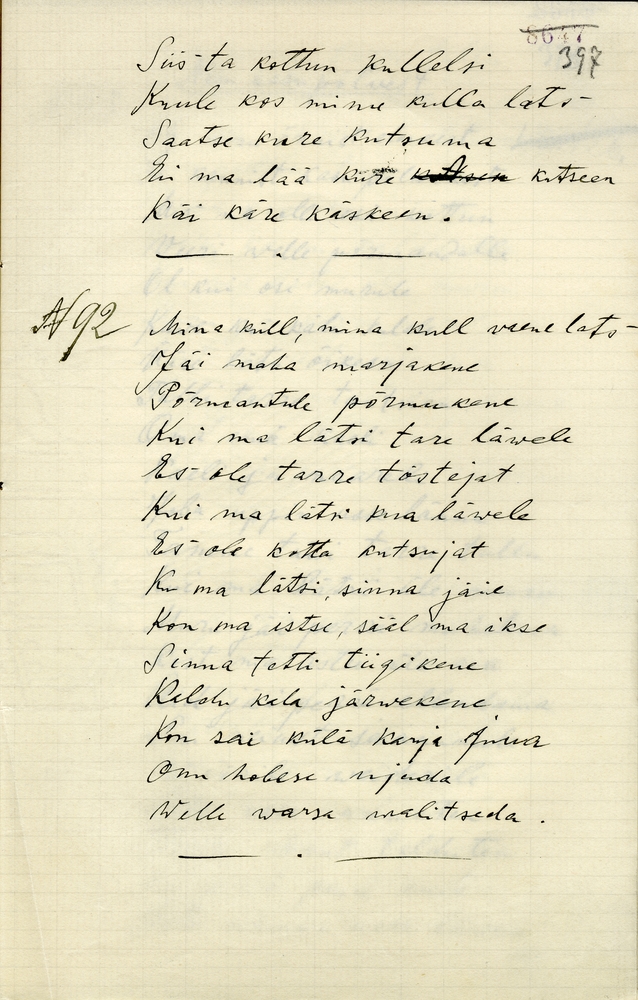 8647
397
Siis ta kottun kullelsi
Kuule kos minu kulla lats-
Saatse kure kutsuma
Ei ma lää kure kutsen kutseen
Käi käre käskeen.
N 92
Mina küll, mina küll vaene lats-
Jäi maha marjakene
Põrmantule põrmukene
Kui ma lätsi tare läwele
Es ole tarre tõstejat
Kui ma lätsi kua läwele
Es ole kotta kutsujat
Ku ma lätsi, sinna jäie
Kon ma istse, sääl ma ikse
Sinna tetti tiigikene
kala järwekene
Kon sai külä karja juua
Onu hobese ujuda
Welle warsa walitseda.